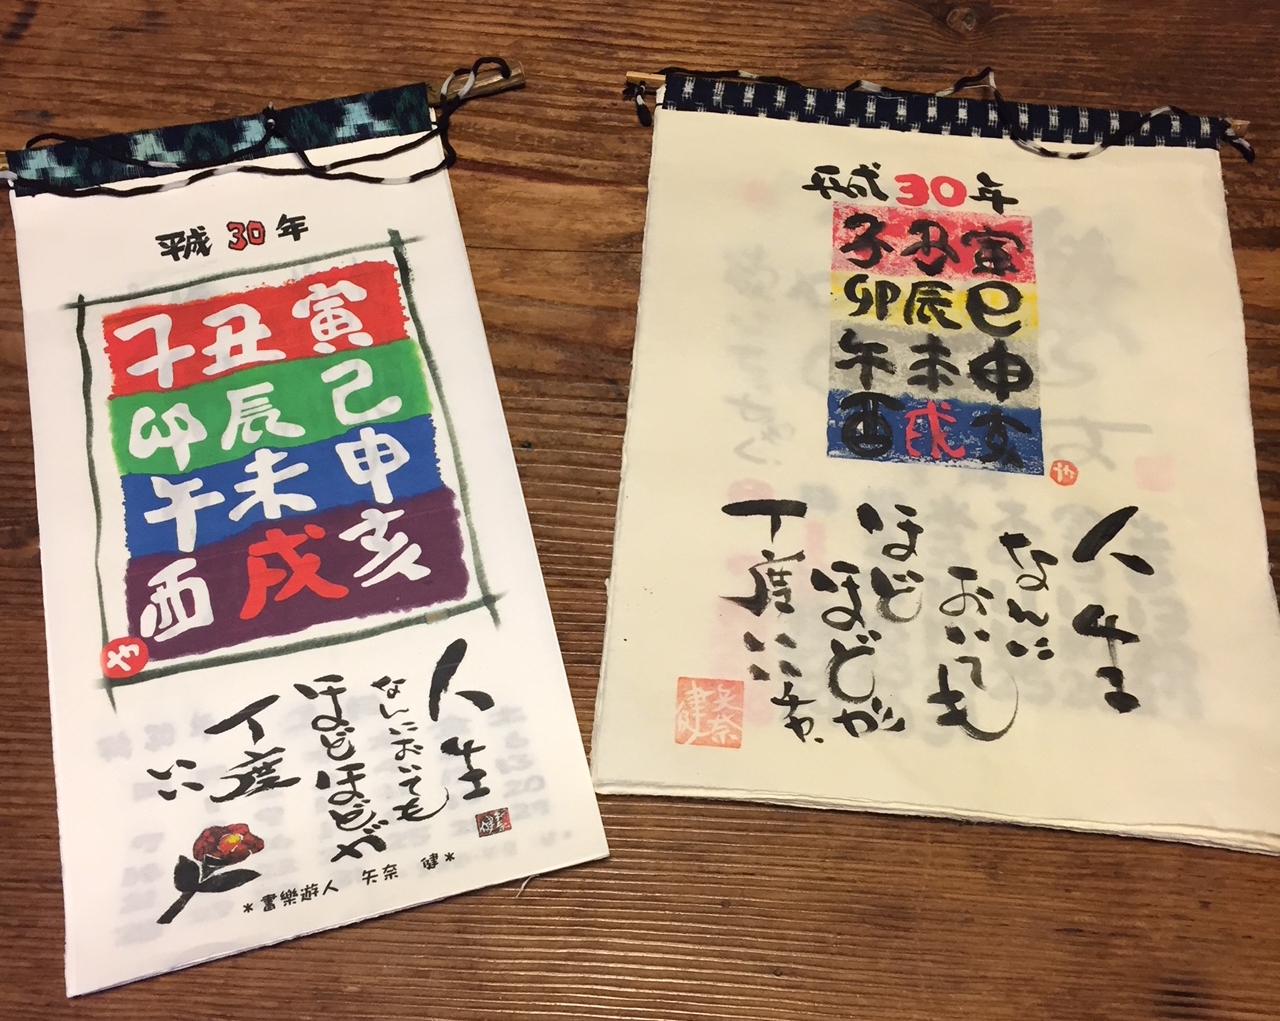 平成 30 年
子丑寅
卯辰己
午未申
酉戌亥
や
人生
なんにおいても
ほどほどが
丁度
いい
*書樂遊人 矢奈 健*
平成30年
子丑寅
卯辰巳
午未申
酉戌亥
や
人生
なんに
おいても
ほど
ほどが
丁度いいちゃ.
矢奈
健